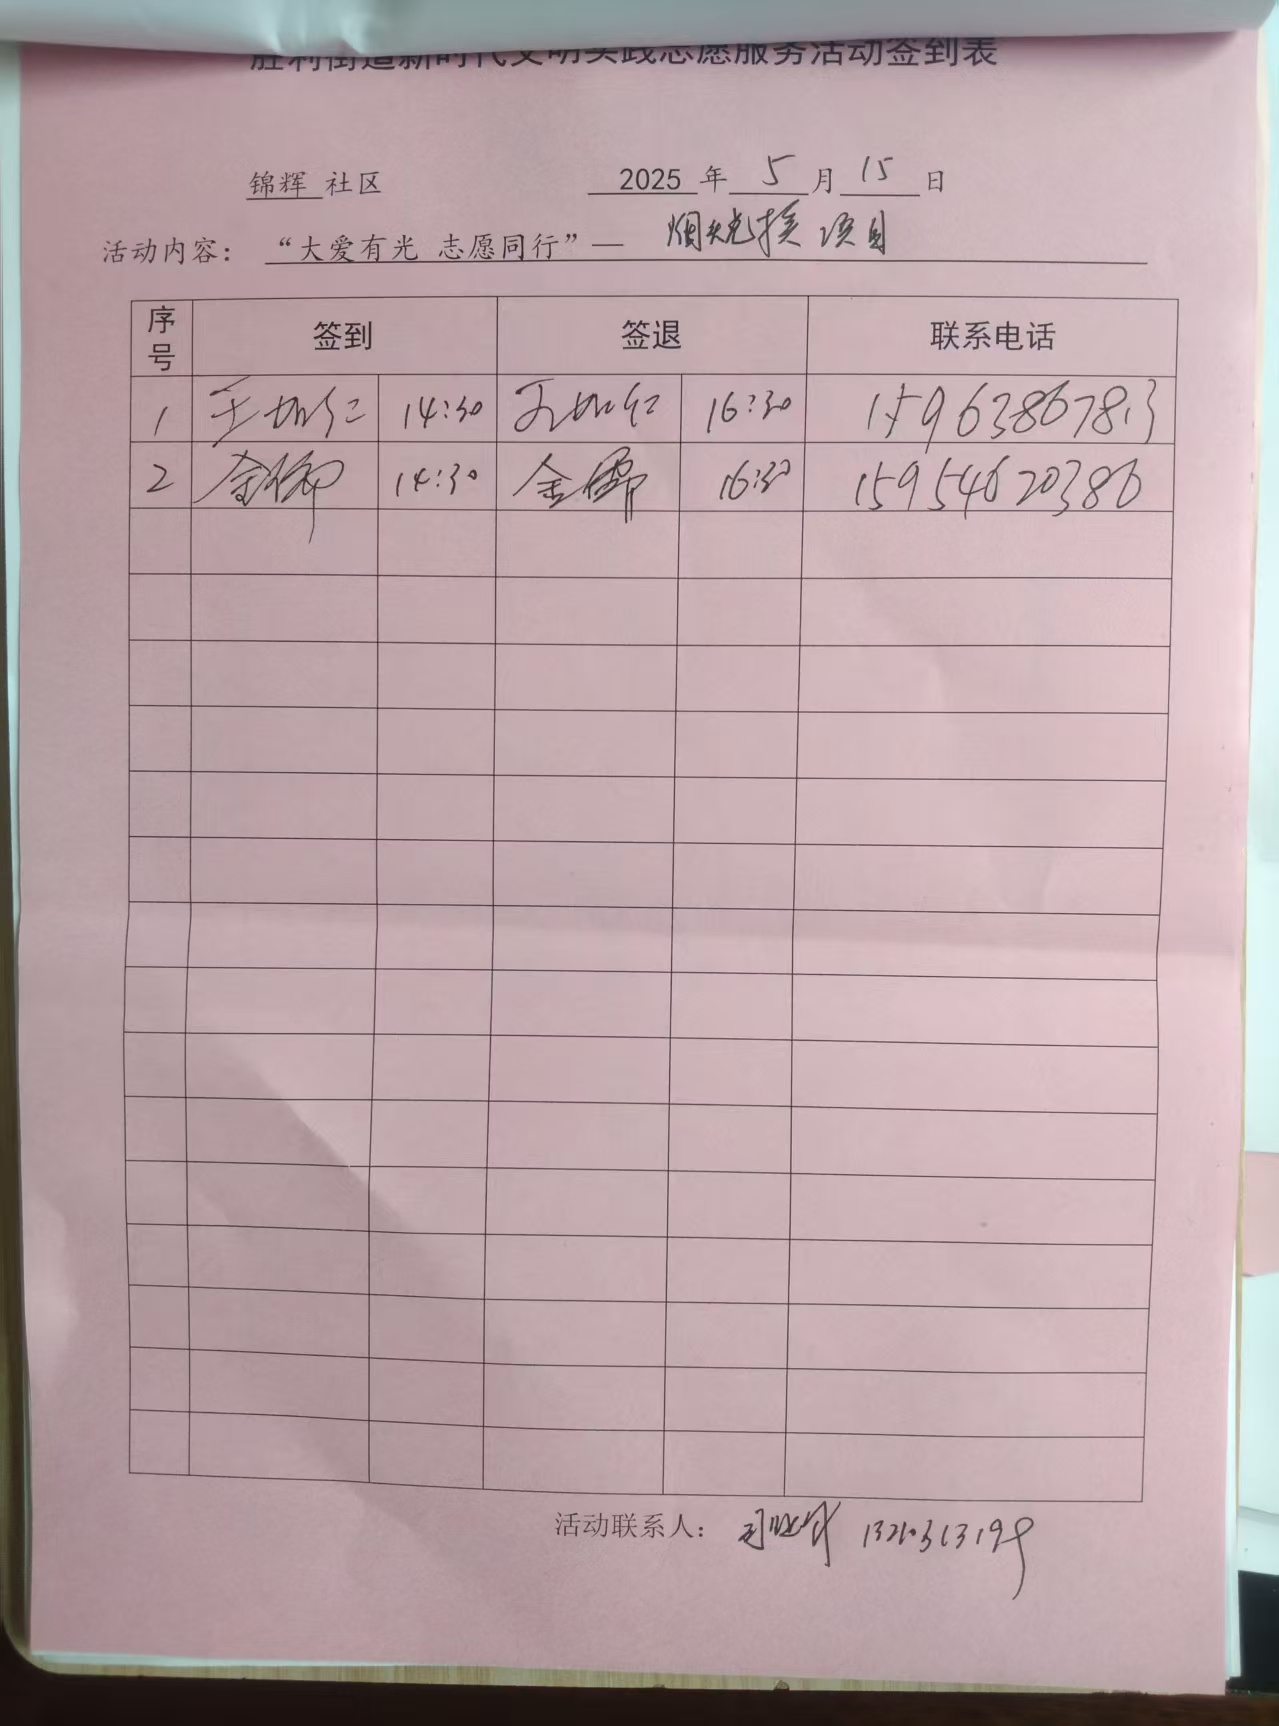 胜利街道新时代文明实践志愿服务活动签到表
锦辉 社区 2025 年 5 月 15 日
活动内容： “大爱有光 志愿同行”— 烟头兑换项目
序号 签到 签退 联系电话
1 14:30 16:30 15963867813
2 14:30 16:30 15954620386
活动联系人：